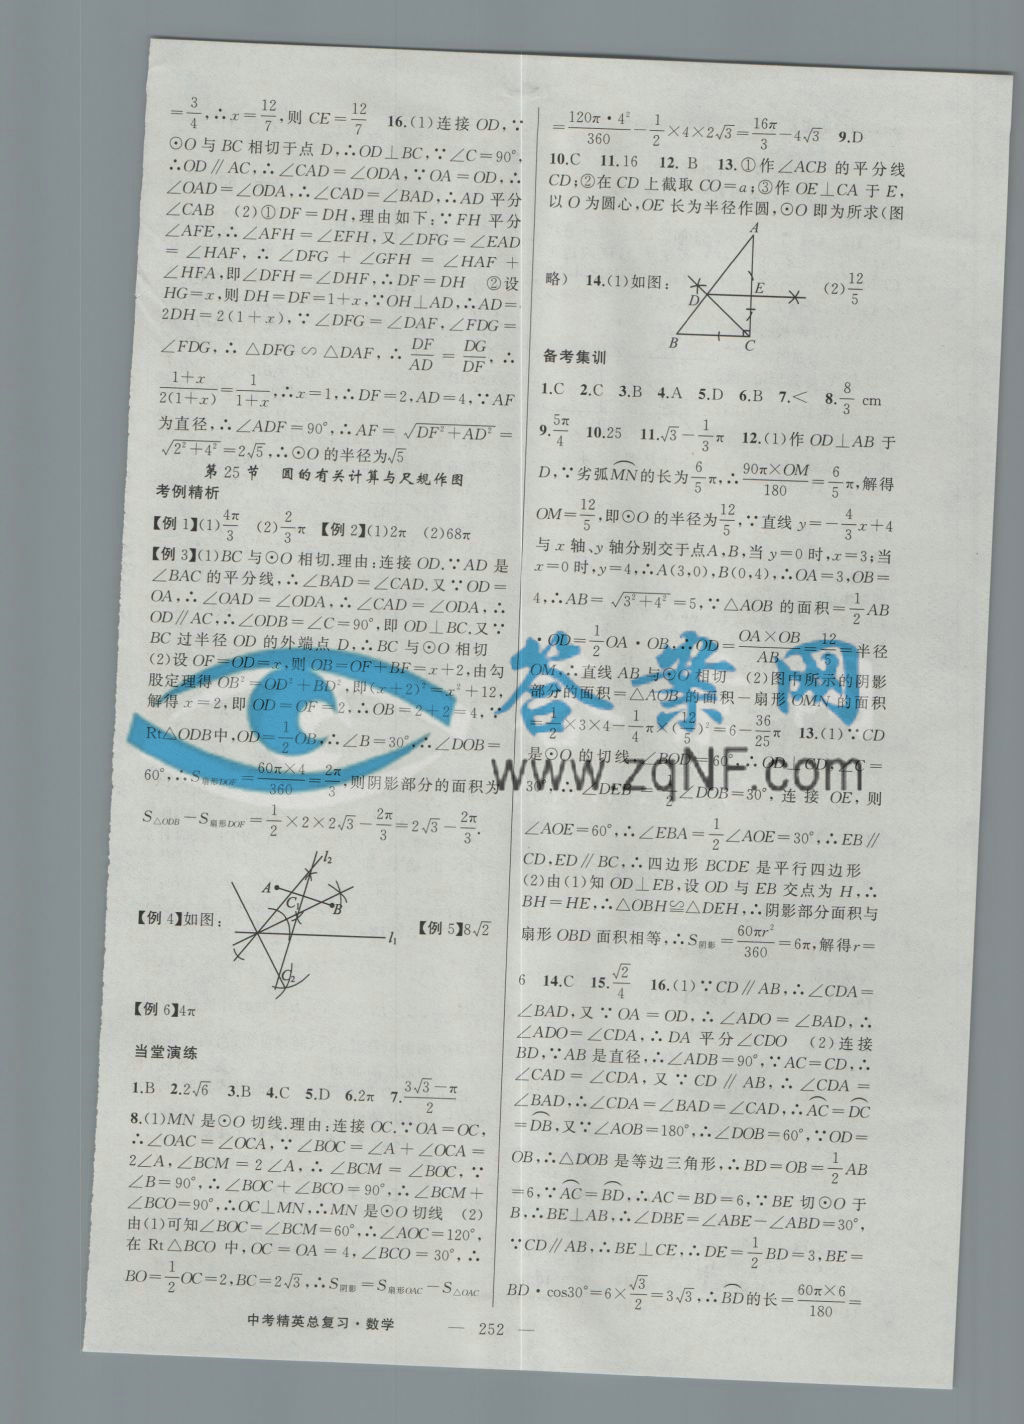 =3/4,∴x=12/7,则 CE=12/7　16.(1)连接 OD,∵
⊙O 与 BC 相切于点 D,∴OD⊥BC,∵∠C=90°,
∴OD∥AC,∴∠CAD=∠ODA,∵OA=OD,∴
∠OAD=∠ODA,∴∠CAD=∠BAD,∴AD 平分
∠CAB　(2)①DF=DH,理由如下:∵FH 平分
∠AFE,∴∠AFH=∠EFH,又∠DFG=∠EAD
=∠HAF,∴∠DFG+∠GFH=∠HAF+
∠HFA,即∠DFH=∠DHF,∴DF=DH　②设
HG=x,则 DH=DF=1+x,∵OH⊥AD,∴AD=
2DH=2(1+x),∵∠DFG=∠DAF,∠FDG=
∠FDG,∴△DFG∽△DAF,∴DF/AD=DG/DF,∴
(1+x)/(2(1+x))=1/(1+x),∴x=1,∴DF=2,AD=4,∵AF
为直径,∴∠ADF=90°,∴AF=√(DF²+AD²)=
√(2²+4²)=2√5,∴⊙O 的半径为√5
第 25 节　圆的有关计算与尺规作图
考例精析
【例 1】(1)4π/3　(2)2/3π　【例 2】(1)2π　(2)68π
【例 3】(1)BC 与⊙O 相切.理由:连接 OD.∵AD 是
∠BAC 的平分线,∴∠BAD=∠CAD.又∵OD=
OA,∴∠OAD=∠ODA,∴∠CAD=∠ODA,∴
OD∥AC,∴∠ODB=∠C=90°,即 OD⊥BC.又∵
BC 过半径 OD 的外端点 D,∴BC 与⊙O 相切
(2)设 OF=OD=x,则 OB=OF+BF=x+2,由勾
股定理得 OB²=OD²+BD²,即(x+2)²=x²+12,
解得 x=2,即 OD=OF=2,∴OB=2+2=4,∵
Rt△ODB中,OD=1/2OB,∴∠B=30°,∴∠DOB=
60°,∴S扇形DOF=60π×4/360=2π/3,则阴影部分的面积为
S△ODB-S扇形DOF=1/2×2×2√3-2π/3=2√3-2π/3.
【例 4】如图:
l₂
A
C₁
B
l₁
C₂
【例 5】8√2
【例 6】4π
当堂演练
1.B　2.2√6　3.B　4.C　5.D　6.2π　7.(3√3-π)/2
8.(1)MN 是⊙O 切线.理由:连接 OC.∵OA=OC,
∴∠OAC=∠OCA,∵∠BOC=∠A+∠OCA=
2∠A,∠BCM=2∠A,∴∠BCM=∠BOC,∵
∠B=90°,∴∠BOC+∠BCO=90°,∴∠BCM+
∠BCO=90°,∴OC⊥MN,∴MN 是⊙O 切线　(2)
由(1)可知∠BOC=∠BCM=60°,∴∠AOC=120°,
在 Rt△BCO 中,OC=OA=4,∠BCO=30°,∴
BO=1/2OC=2,BC=2√3,∴S阴影=S扇形OAC-S△OAC
=120π·4²/360-1/2×4×2√3=16π/3-4√3　9.D
10.C　11.16　12.B　13.①作∠ACB 的平分线
CD;②在 CD 上截取 CO=a;③作 OE⊥CA 于 E,
以 O 为圆心,OE 长为半径作圆,⊙O 即为所求(图
略)　14.(1)如图:
A
D
E
B
C
(2)12/5
备考集训
1.C　2.C　3.B　4.A　5.D　6.B　7.<　8.8/3 cm
9.5π/4　10.25　11.√3-1/3π　12.(1)作 OD⊥AB 于
D,∵劣弧MN的长为6/5π,∴90π×OM/180=6/5π,解得
OM=12/5,即⊙O 的半径为12/5,∵直线 y=-4/3x+4
与 x 轴、y 轴分别交于点A,B,当 y=0 时,x=3;当
x=0时,y=4,∴A(3,0),B(0,4),∴OA=3,OB=
4,∴AB=√(3²+4²)=5,∵△AOB 的面积=1/2AB
·OD=1/2OA·OB,∴OD=OA×OB/AB=12/5=半径
OM,∴直线 AB 与⊙O 相切　(2)图中所示的阴影
部分的面积=△AOB 的面积-扇形 OMN 的面积
=1/2×3×4-1/4π×(12/5)²=6-36/25π　13.(1)∵CD
是⊙O 的切线,∠BOD=60°,∴OD⊥CD,∠C=
30°,∴∠DEB=1/2∠DOB=30°,连接 OE,则
∠AOE=60°,∴∠EBA=1/2∠AOE=30°,∴EB∥
CD,ED∥BC,∴四边形 BCDE 是平行四边形
(2)由(1)知 OD⊥EB,设 OD 与 EB 交点为 H,∴
BH=HE,∴△OBH≌△DEH,∴阴影部分面积与
扇形 OBD 面积相等,∴S阴影=60πr²/360=6π,解得r=
6　14.C　15.√2/4　16.(1)∵CD∥AB,∴∠CDA=
∠BAD,又∵OA=OD,∴∠ADO=∠BAD,∴
∠ADO=∠CDA,∴DA 平分∠CDO　(2)连接
BD,∵AB 是直径,∴∠ADB=90°,∵AC=CD,∴
∠CAD=∠CDA,又∵CD∥AB,∴∠CDA=
∠BAD,∴∠CDA=∠BAD=∠CAD,∴AC=DC
=DB,又∵∠AOB=180°,∴∠DOB=60°,∵OD=
OB,∴△DOB 是等边三角形,∴BD=OB=1/2AB
=6,∵AC=BD,∴AC=BD=6,∵BE 切⊙O 于
B,∴BE⊥AB,∴∠DBE=∠ABE-∠ABD=30°,
∵CD∥AB,∴BE⊥CE,∴DE=1/2BD=3,BE=
BD·cos30°=6×√3/2=3√3,∴BD的长=60π×6/180=
中考精英总复习·数学　— 252 —
答案网
www.zqNF.com